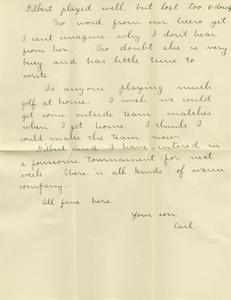 Gilbert played well but lost too.
No word from our hero yet
I can't imagine why I don't hear
from her. No doubt she is very
busy and has little time to
write.
Is anyone playing much
golf at home. I wish we could
get some outside team matches
when I get home. I think I
could make the team now.
Gilbert and I have entired in
a foursome tournament for next
week. There is all kinds of warm
company.
All fine here.
Your son
Carl.